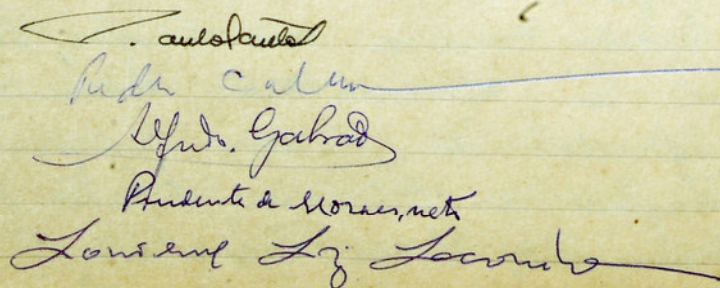 Pedro Calmon
Alfredo Galvão
Prudente de Moraes, neto
Lourenço Luiz Lacombe